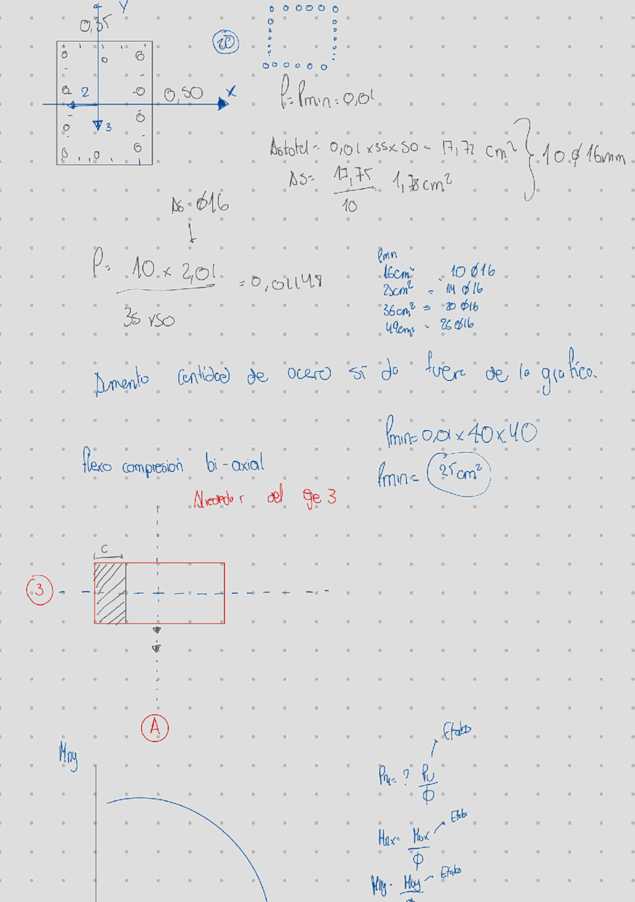 Y
0,35
20
2
0,50
X
3
ρ=ρmin=0,01
Astotal= 0,01 x 35 x 50 = 17,75 cm²
As= 17,75 / 10 1,78cm²
10 ø 16mm
As=ø16
ρ= 10 x 2,01 / 35 x 50 = 0,01148
ρmin
16cm² = 10 ø16
25cm² = 14 ø16
36cm² = 20 ø16
49cm² = 26 ø16
Aumento cantidad de acero si da fuera de la grafica.
ρmin=0,01x40x40
ρmin= 25cm²
flexo compresión bi-axial
Alrededor del eje 3
c
3
A
Mny
Pn= ? Pu / ϕ Etabs
Mnx= Mux / ϕ Etabs
Mny= Muy / ϕ Etabs